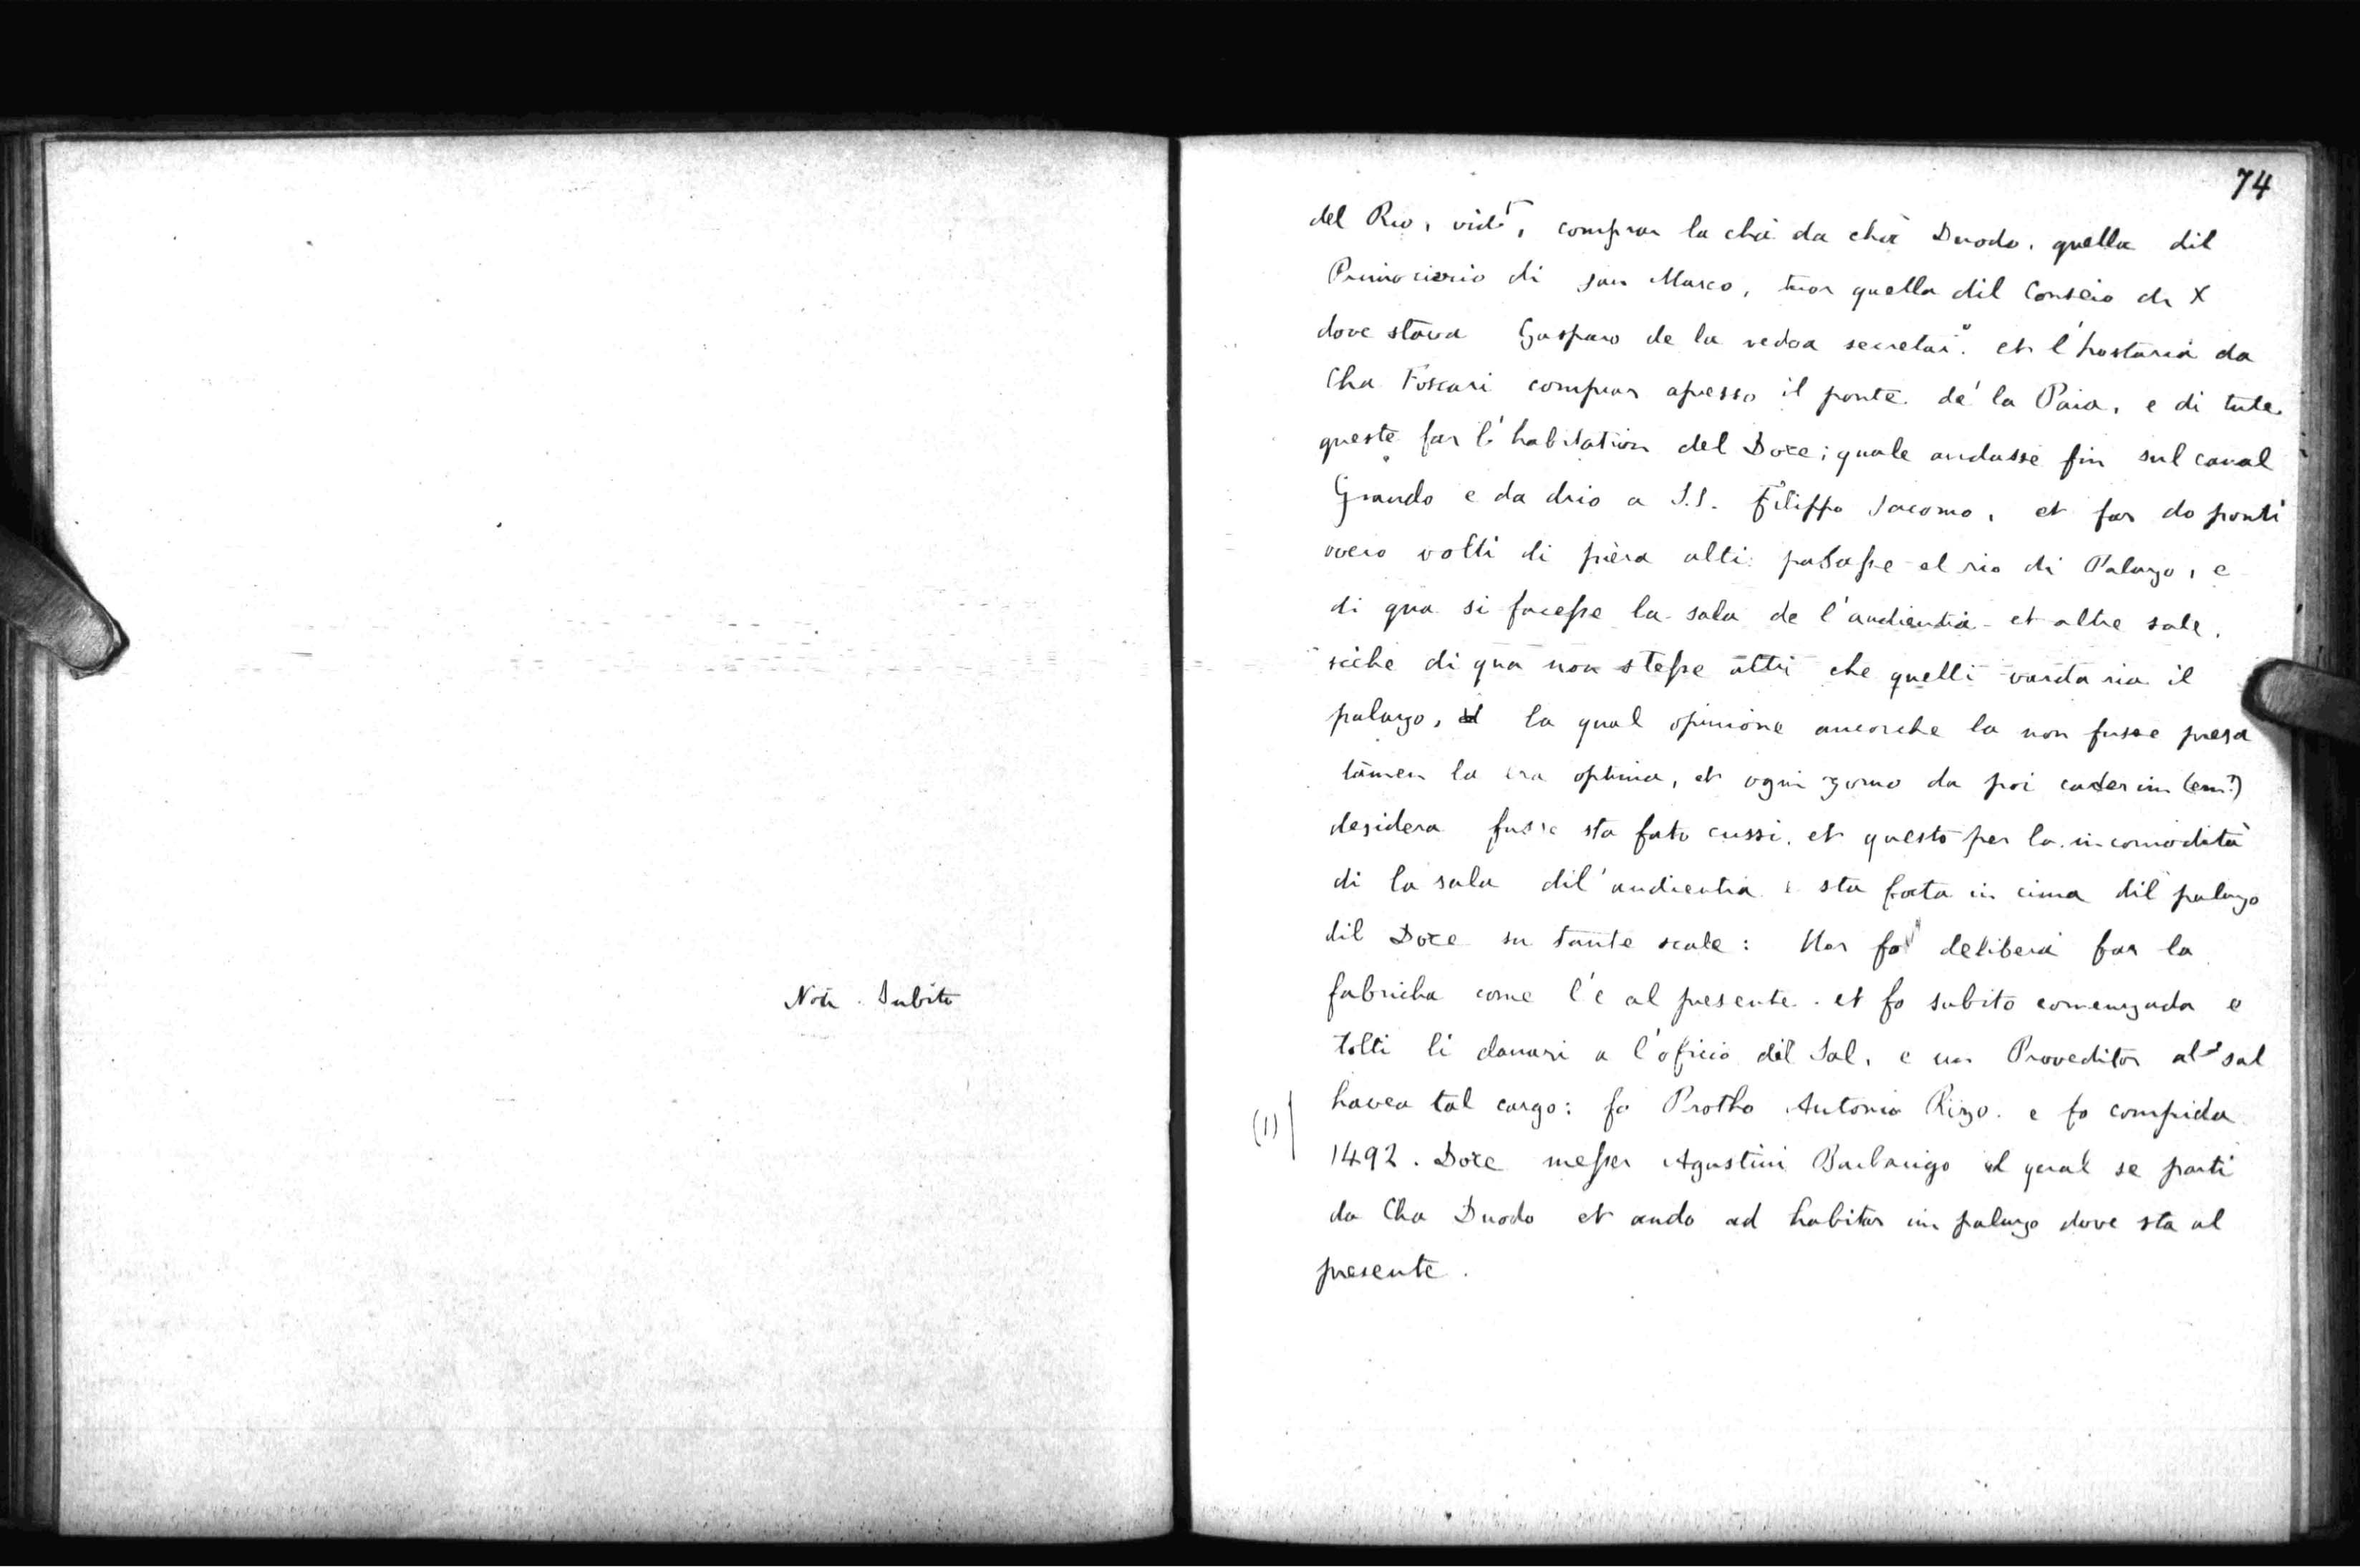 Non. Subito
74
del Rio, vidt, comprar la chà da chà Duodo, quella dil
Primocierio di san Marco, tuor quella dil Conseio di X
dove stava Gasparo de la vedoa secretario. et l'hostaria da
Cha Foscari comprar apresso il ponte de la Paia, e di tute
queste far l'habitation del Doxe; quale andasse fin sul canal
Grando e da drio a S.S. Filippo Jacomo, et far do ponti
overo volti di piera alti: passasse el rio di Palazo, e
di qua si facesse la sala de l'audientia et altre sale,
siche di qua non stesse altri che quelli vardaria il
palazo, la qual opinione ancorche la non fusse presa
tamen la era optima, et ogni zorno da poi caderim (em?)
desidera fusse sta fato cussi, et questo per la incomodità
di la sala dil'audientia è sta fata in cima dil palazo
dil Doxe su tante scale: Hor fo deliberà far la
fabricha come l'è al presente. et fo subito comenzada e
tolti li danari a l'oficio dil Sal, e un Proveditor al sal
(1) havea tal cargo: fo Protho Antonio Rizo. e fo compida
1492. Doxe messer Agustini Barbarigo el qual se parti
da Cha Duodo et ando ad habitar im palazo dove sta al
presente.